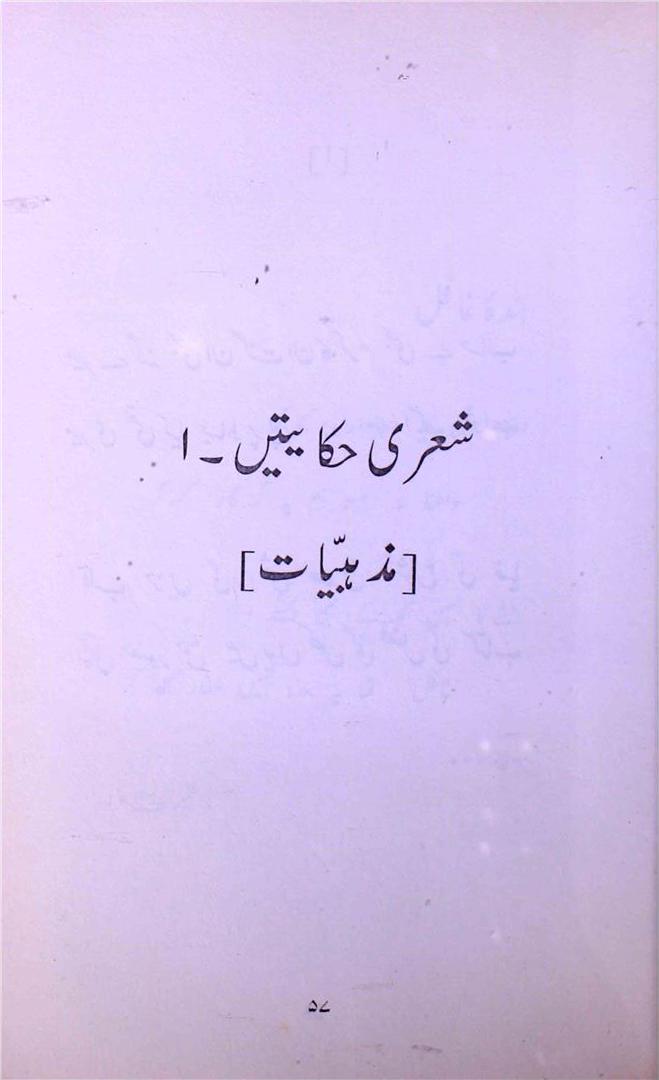 شعری حکایتیں ۔ ۱
[مذہبیّات]
۵۷